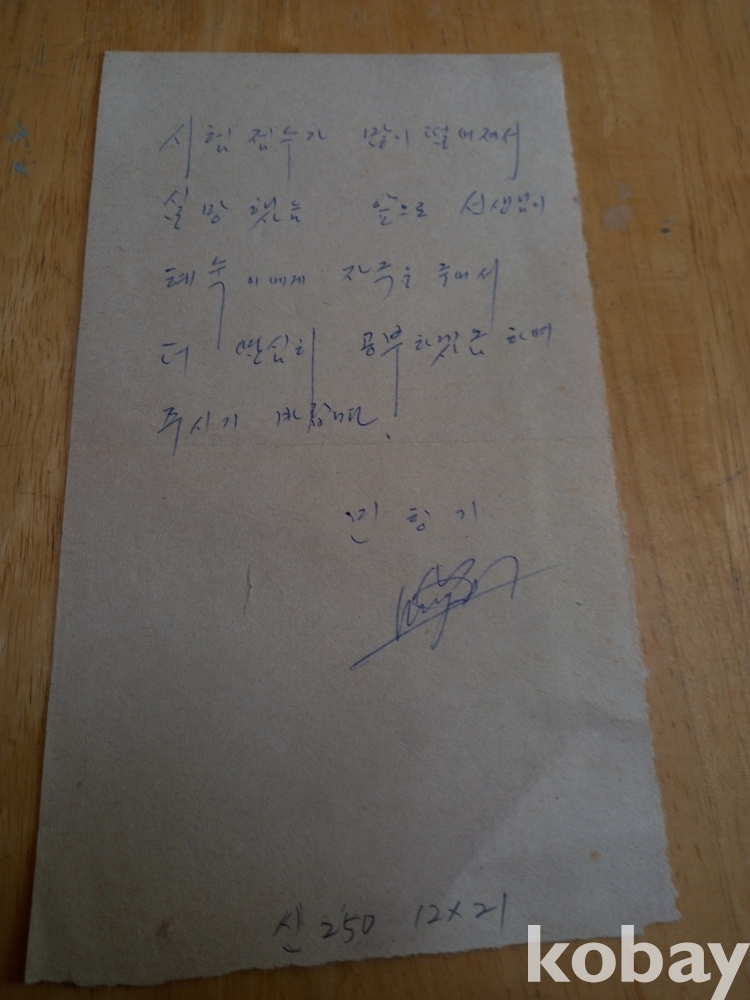 시험점수가 많이 떨어져서
실망했음 앞으로 선생님이
혜숙이에게 자극을 주어서
더 열심히 공부하겠끔 하여
주시기 바랍니다.
민항기
신 250 12×21
kobay